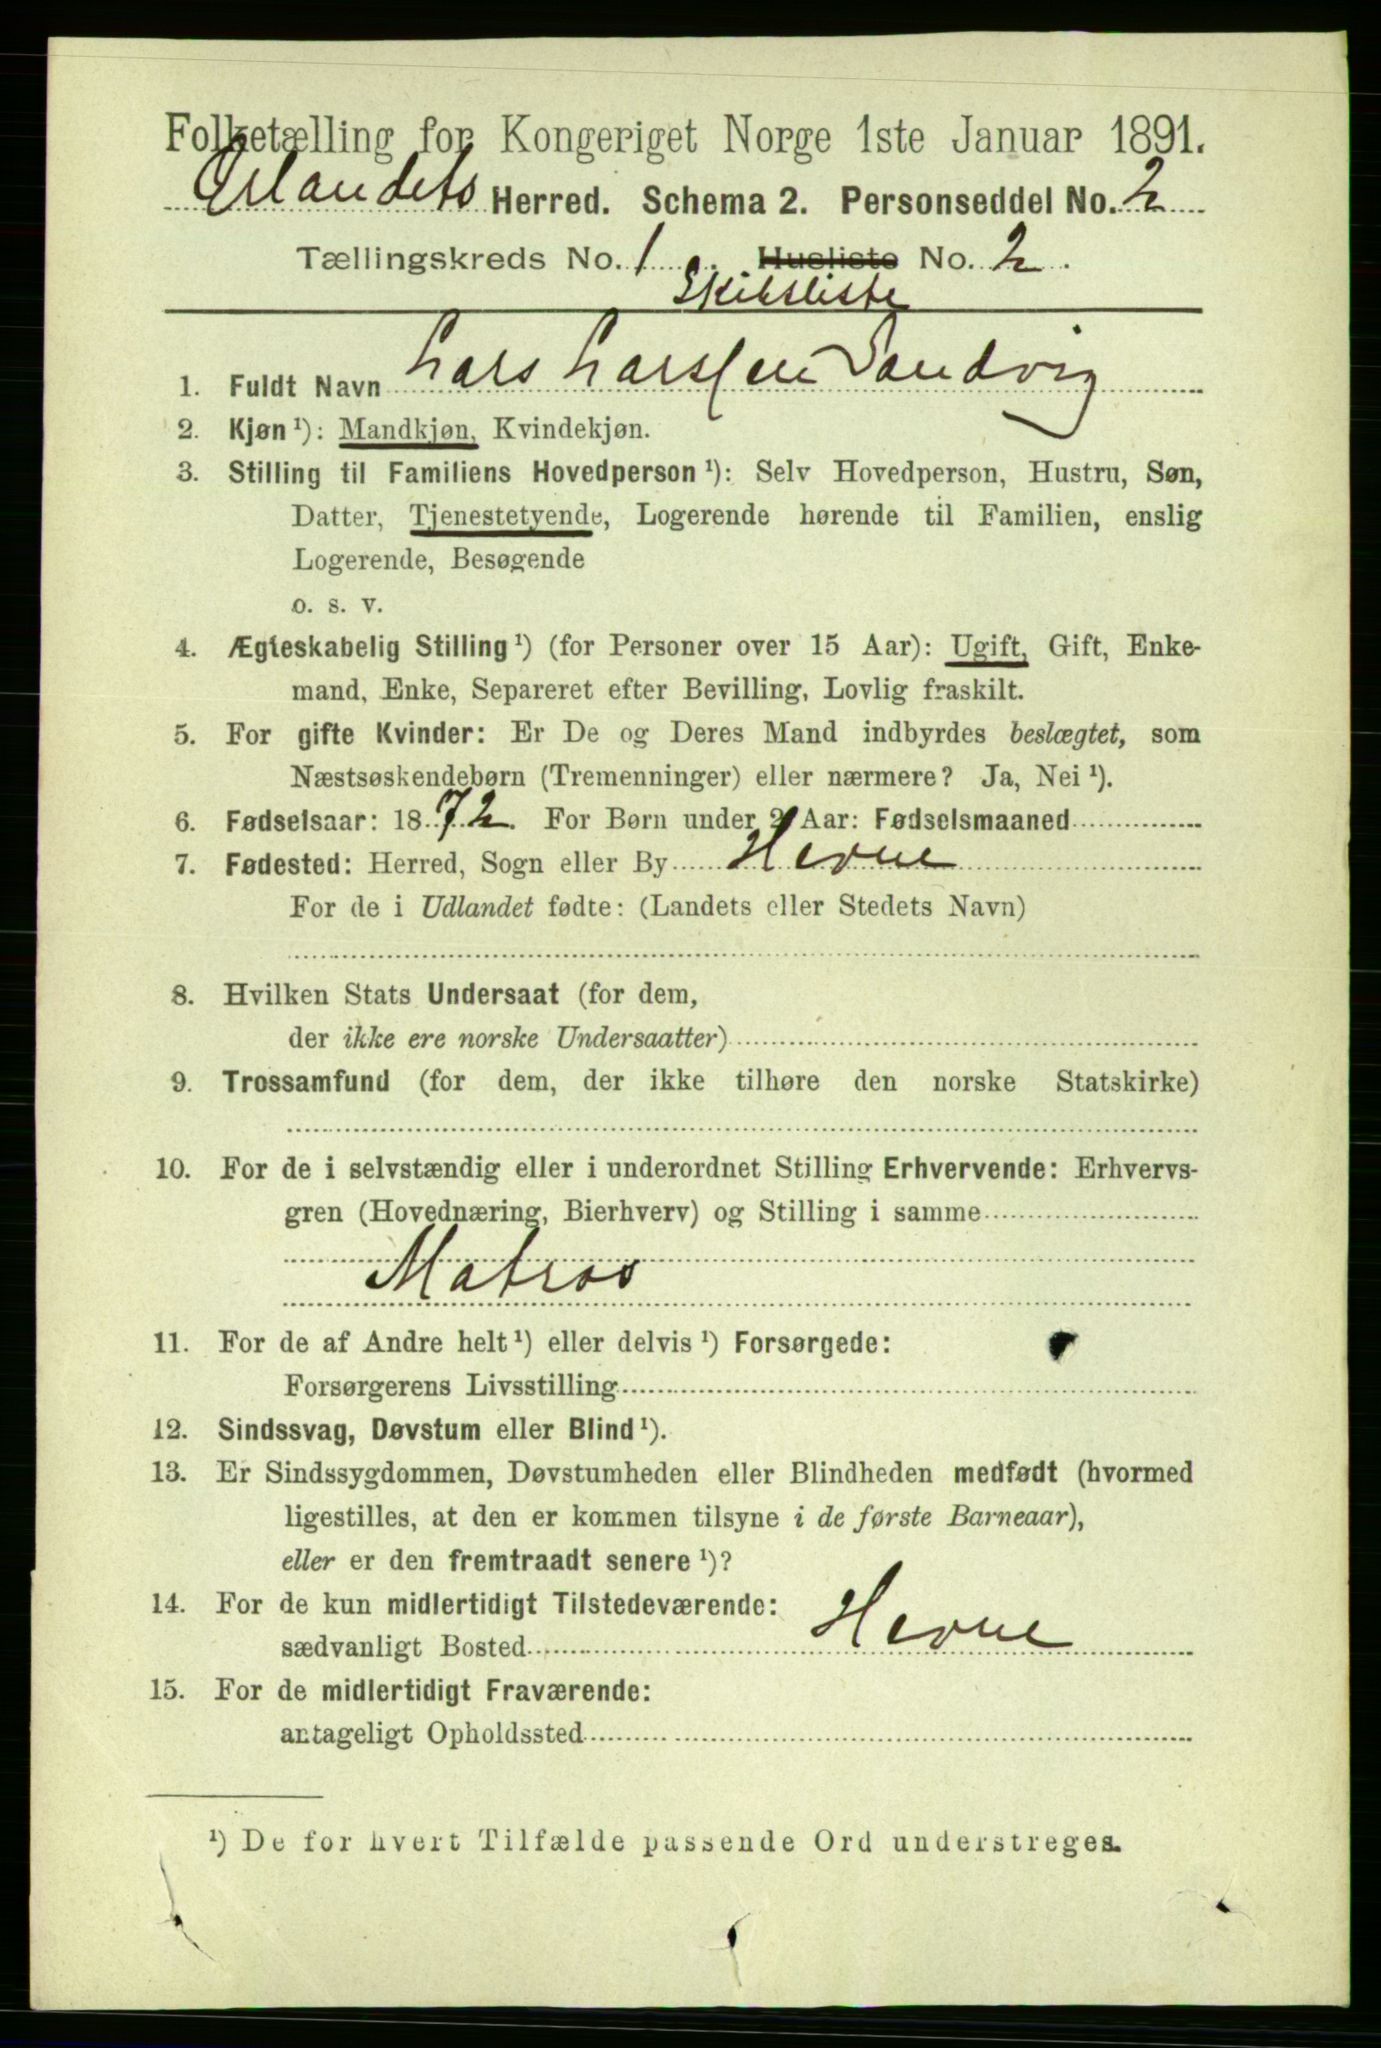 Folketælling for Kongeriget Norge 1ste Januar 1891.
Ørlandets Herred. Schema 2. Personseddel No. 2
Tællingskreds No. 1. Husliste No. 2.
Skibsliste
1. Fuldt Navn Lars Larssen Sandvig
2. Kjøn ¹): Mandkjøn, Kvindekjøn.
3. Stilling til Familiens Hovedperson ¹): Selv Hovedperson, Hustru, Søn,
Datter, Tjenestetyende, Logerende hørende til Familien, enslig
Logerende, Besøgende
o. s. v.
4. Ægteskabelig Stilling ¹) (for Personer over 15 Aar): Ugift, Gift, Enke-
mand, Enke, Separeret efter Bevilling, Lovlig fraskilt.
5. For gifte Kvinder: Er De og Deres Mand indbyrdes beslægtet, som
Næstsøskendebørn (Tremenninger) eller nærmere? Ja, Nei ¹).
6. Fødselsaar: 1872. For Børn under 2 Aar: Fødselsmaaned
7. Fødested: Herred, Sogn eller By Hevne
For de i Udlandet fødte: (Landets eller Stedets Navn)
8. Hvilken Stats Undersaat (for dem,
der ikke ere norske Undersaatter)
9. Trossamfund (for dem, der ikke tilhøre den norske Statskirke)
10. For de i selvstændig eller i underordnet Stilling Erhvervende: Erhvervs-
gren (Hovednæring, Bierhverv) og Stilling i samme
Matros
11. For de af Andre helt ¹) eller delvis ¹) Forsørgede:
Forsørgerens Livsstilling
12. Sindssvag, Døvstum eller Blind ¹).
13. Er Sindssygdommen, Døvstumheden eller Blindheden medfødt (hvormed
ligestilles, at den er kommen tilsyne i de første Barneaar),
eller er den fremtraadt senere ¹)?
14. For de kun midlertidigt Tilstedeværende:
sædvanligt Bosted Hevne
15. For de midlertidigt Fraværende:
antageligt Opholdssted
¹) De for hvert Tilfælde passende Ord understreges.